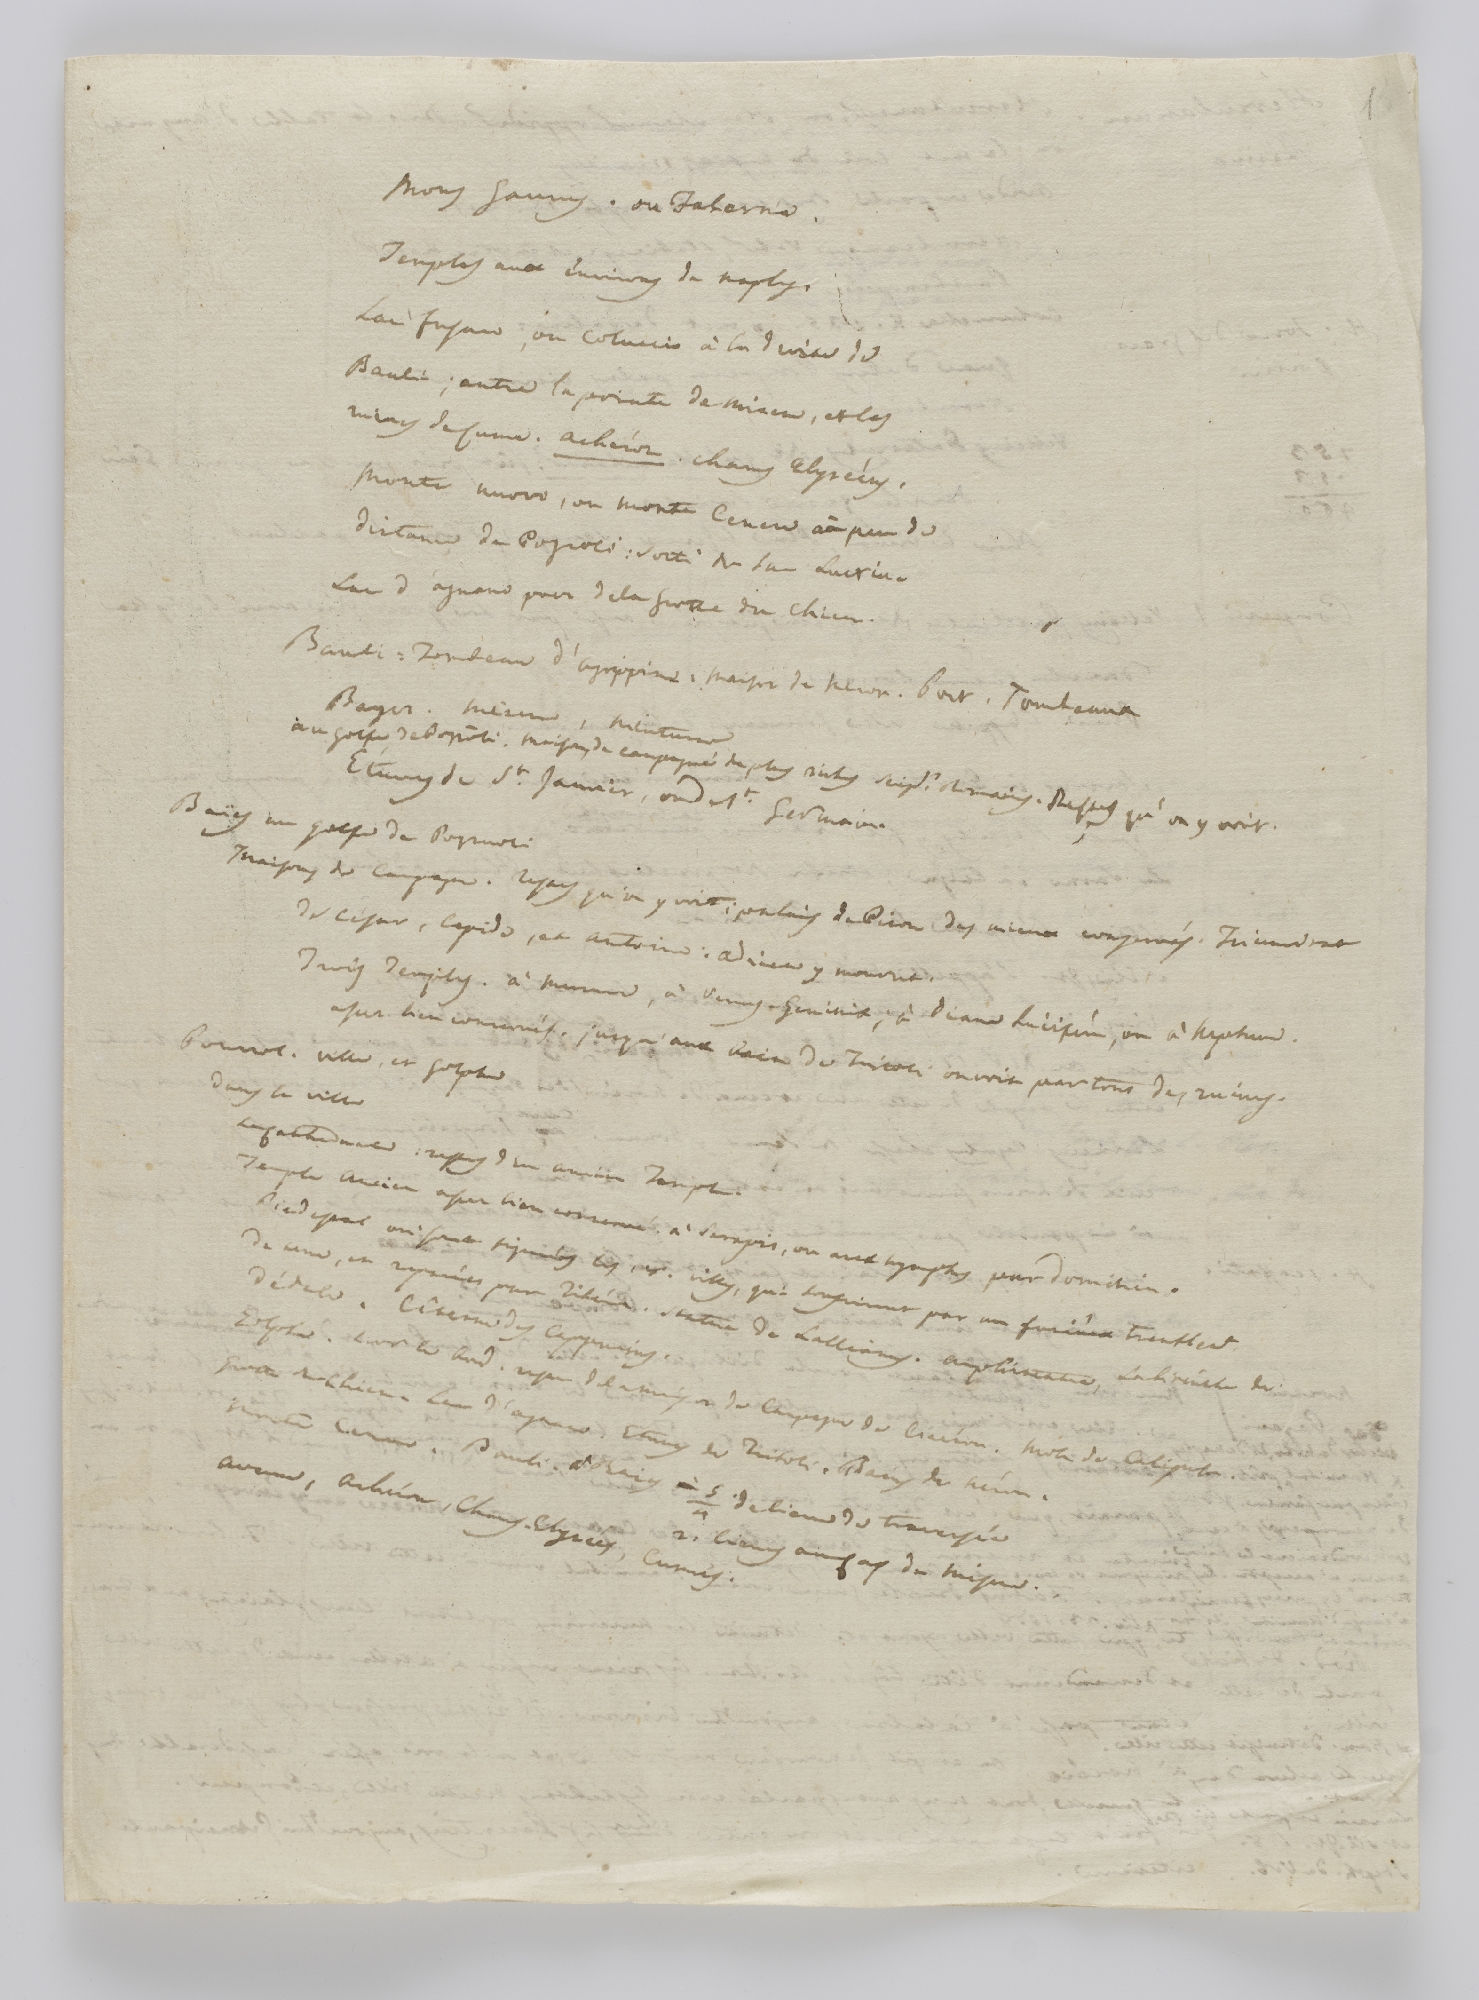 1
Mons Gaurus. ou Falerne.
Temples aux environs de naples.
Lac fusaro, ou Coluccio à la droite de
Bauli; entre la pointe de misene, et les
ruines de Cume. acheron. champs Elyséens.
Monte nuovo, ou monte Cenere à peu de
distance de Pozzoli: sorti du lac Lucrin.
Lac d'agnano pour de la Grotte du Chien.
Bauli: Tombeau d'agrippine. maison de Néron. Port. Tombeaux
Bayes. misene,
au golfe de Pozzoli. maisons de campagne des plus riches romains. Restes qu'on y voit.
Etuves de St. Janvier, ou de St. Germain.
Bayes au golfe de Pozzuoli
Maisons de Campagne. restes qu'on y voit; palais de Pison des mieux conservés. Triumvirat
de César, Lepide, et antoine: adrien y mourut.
Trois Temples. à mercure, à Venus Genitrix, à Diane Lucifère, ou à Neptune.
assez bien conservés. jusqu'aux bain de Tritoli on voit par tout des ruines.
Pouzzol. ville, et golphe
dans la ville
La cathédrale: restes d'un ancien Temple.
Temple ancien assez bien conservé. à Serapis, ou aux nymphes par Domitien.
Piedestal où sont figurées les 14. villes, qui souffrirent par un furieux tremblemt
de terre, et reparées par Tibère. statue de Lollianus. amphithéatre, Labirinte de
Dédale. Citerne des Cappucins.
Golphe. sur le bord. restes de la maison de Campagne de Cicéron. mole de Caligula.
Grotte du Chien. Lac d'agnano. Etuves de Tritoli. Bains de néron.
Monte Cenere. Bauli. à 5/4 de lieue de traversée
2. lieues au cap de misene.
averne, acheron, Champs Elysées, Cumes.